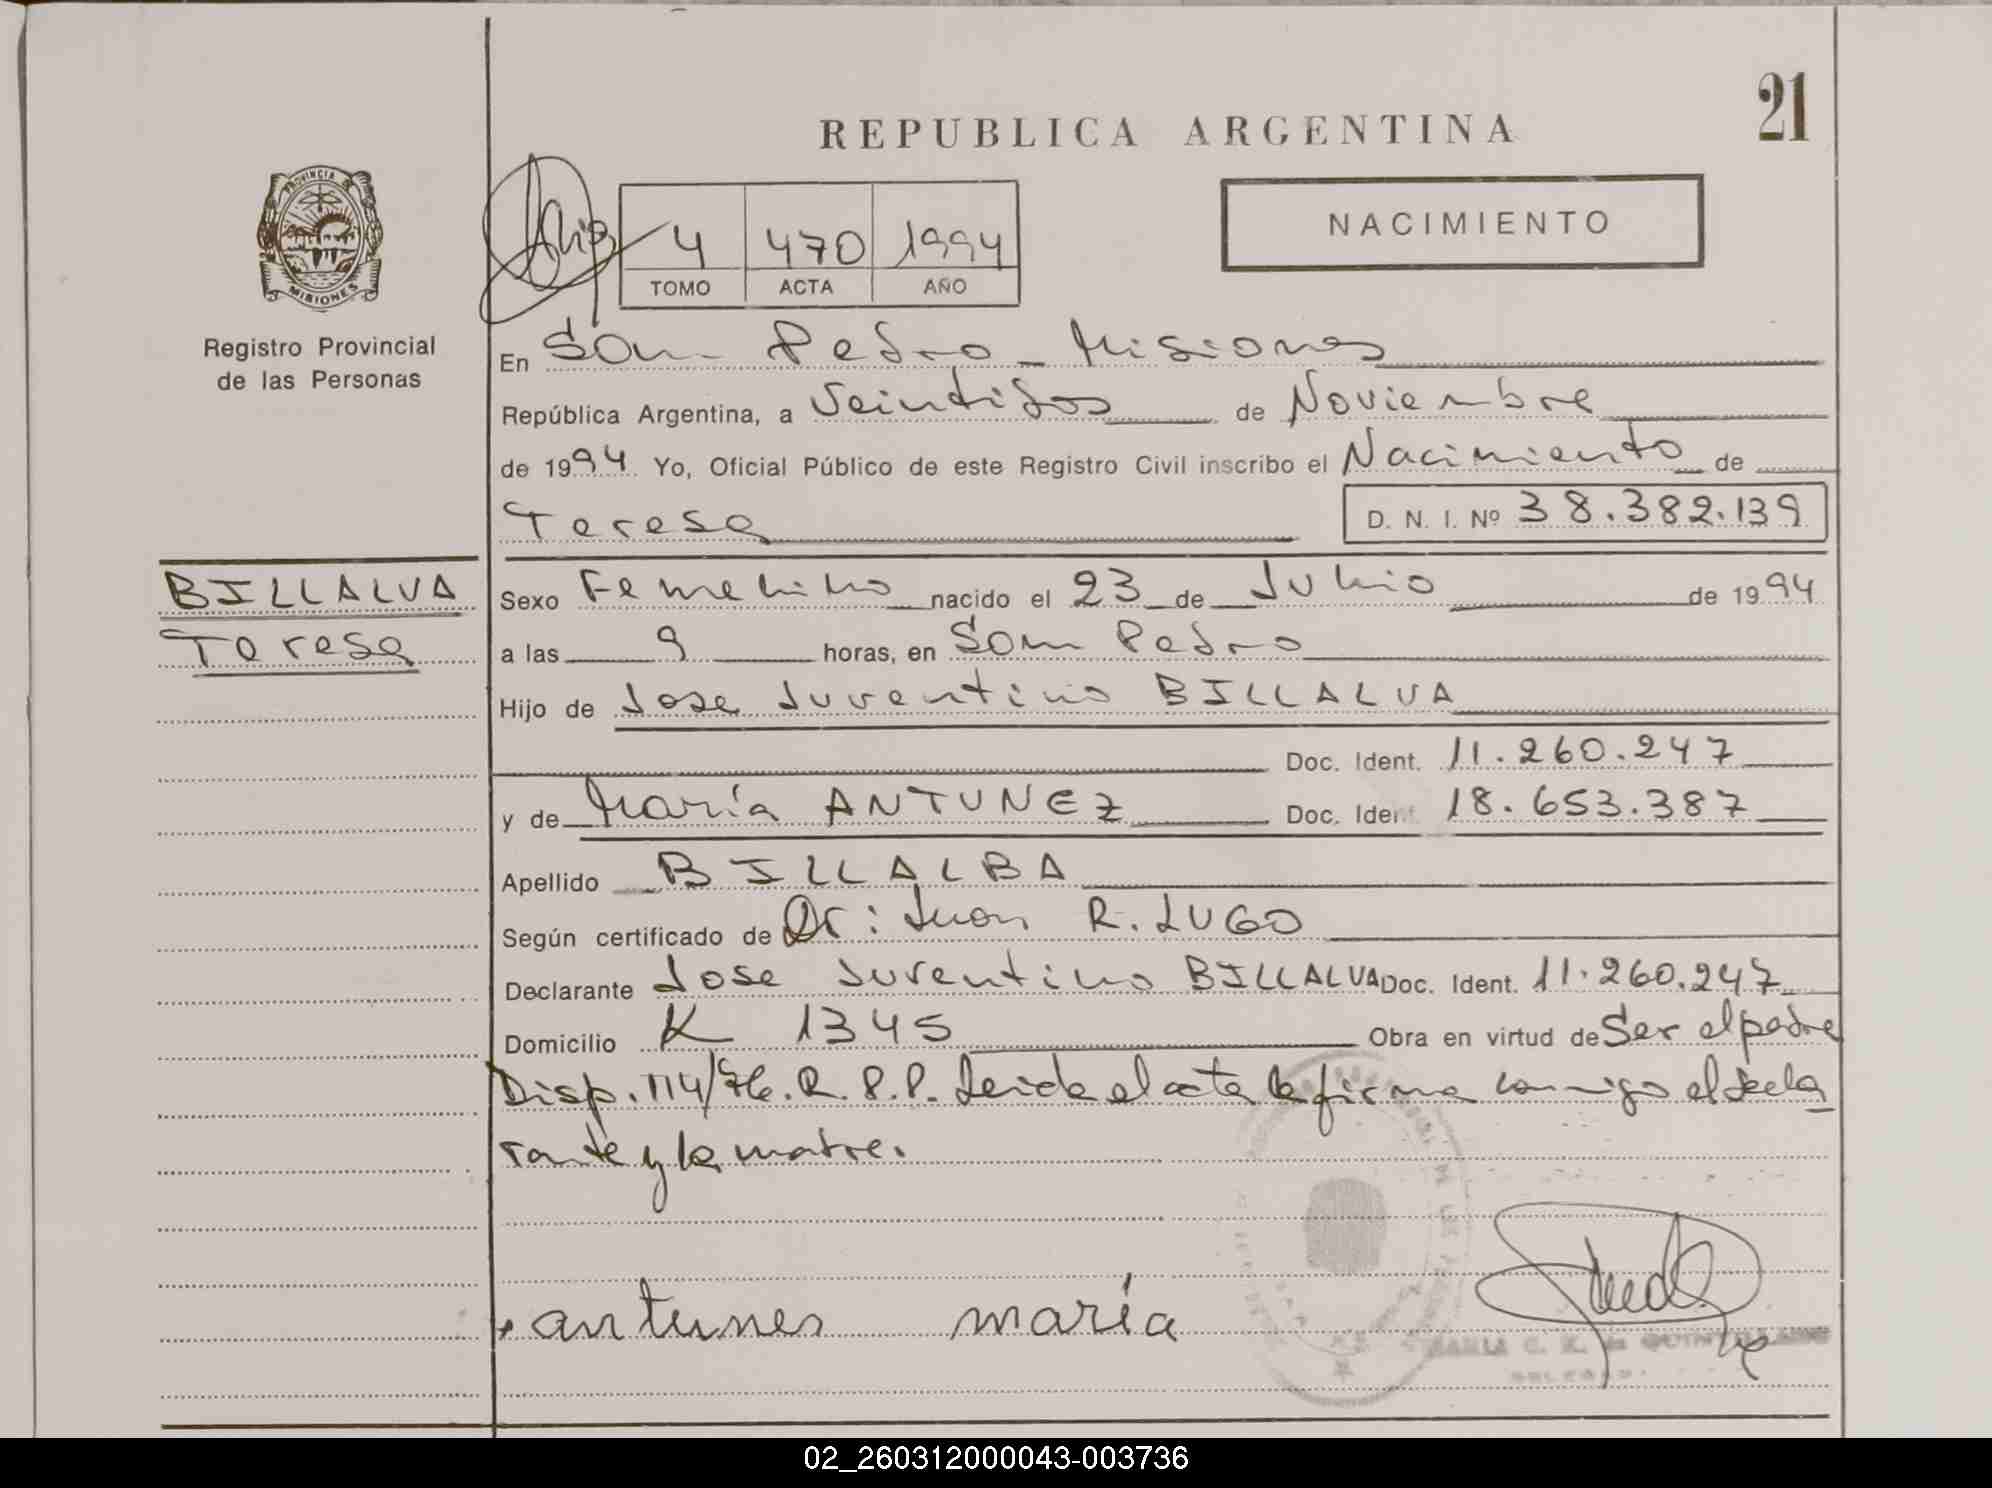 21
REPUBLICA ARGENTINA
NACIMIENTO
PROVINCIA DE
MISIONES
Registro Provincial
de las Personas
4 470 1994
TOMO ACTA AÑO
En San Pedro - Misiones
República Argentina, a Veintidos de Noviembre
de 1994 Yo, Oficial Público de este Registro Civil inscribo el Nacimiento de
Teresa D. N. I. Nº 38.382.139
BILLALVA
Teresa
Sexo Femenino nacido el 23 de Junio de 1994
a las 9 horas, en San Pedro
Hijo de Jose Juventino BILLALVA
Doc. Ident. 11.260.247
y de María ANTUNEZ Doc. Ident. 18.653.387
Apellido BILLALBA
Según certificado de Dr: Juan R. LUGO
Declarante Jose Juventino BILLALVA Doc. Ident. 11.260.247
Domicilio K 1345 Obra en virtud de Ser el padre
Disp. 114/76. R. P. P. Leida el acta la firma conmigo el decla
rante y la madre.
antunes maría
MARIA C. K. de
02_260312000043-003736